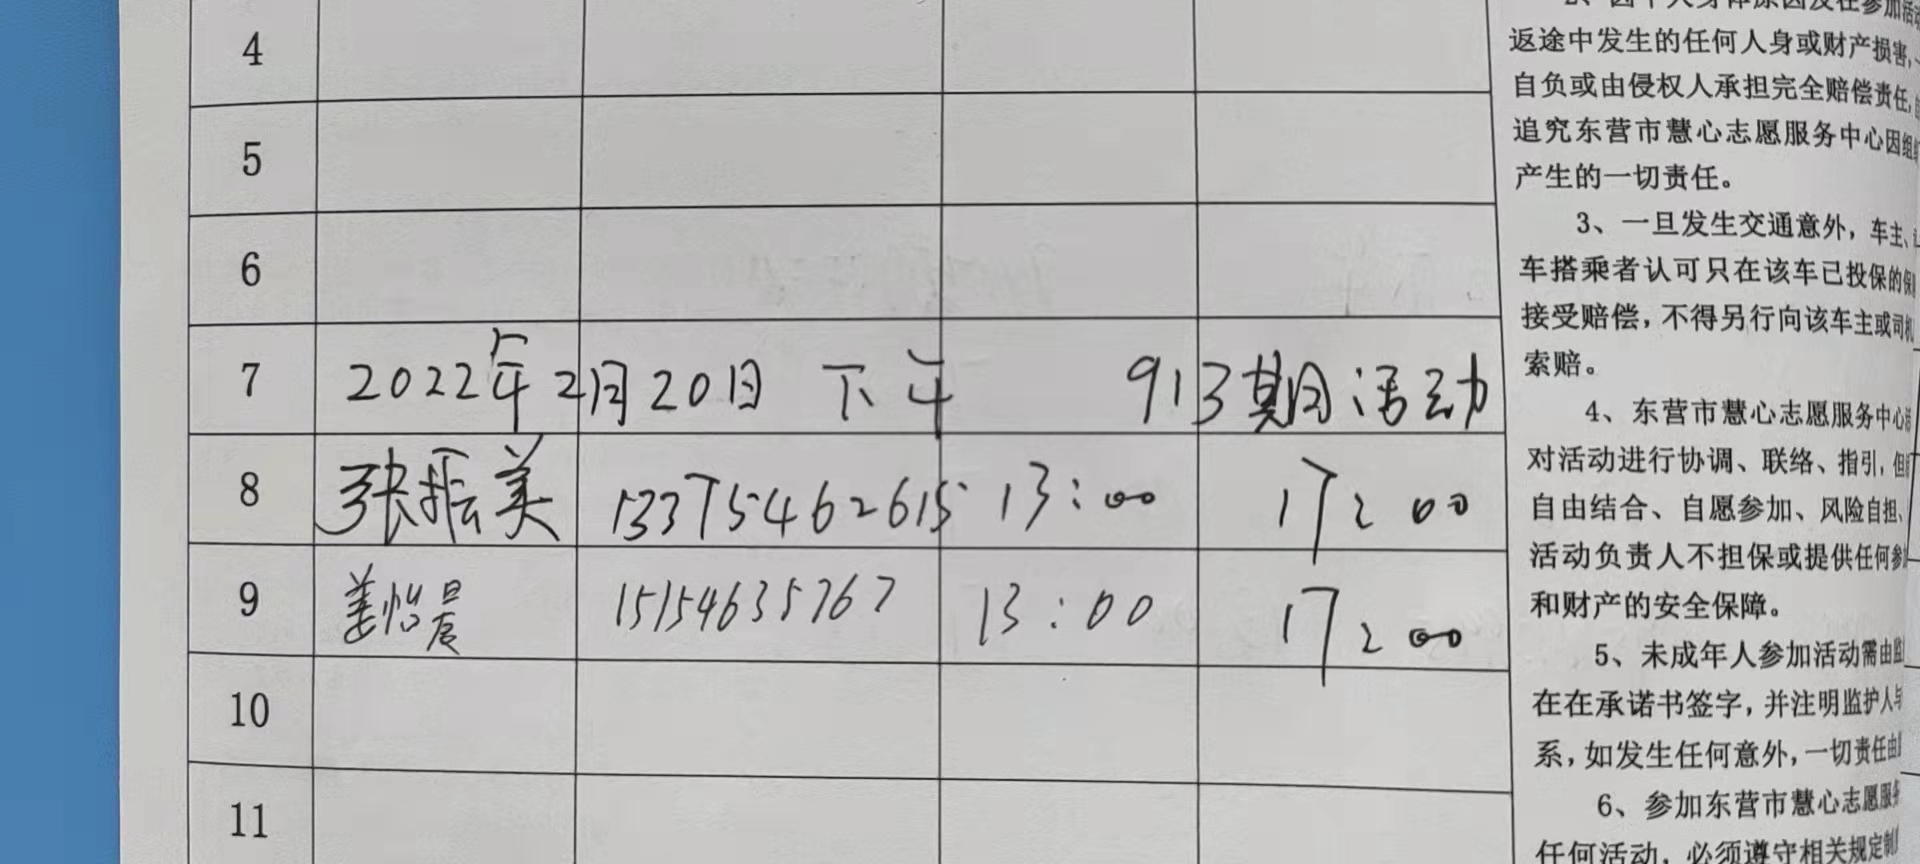 4
5
6
7 2022年2月20日 下午 913期活动
8 张振美 13375462615 13:00 17:00
9 姜怡晨 15154635767 13:00 17:00
10
11
2、因个人身体原因及在参加活
返途中发生的任何人身或财产损害，
自负或由侵权人承担完全赔偿责任，
追究东营市慧心志愿服务中心因组
产生的一切责任。
3、一旦发生交通意外，车主、
车搭乘者认可只在该车已投保的保
接受赔偿，不得另行向该车主或司机
索赔。
4、东营市慧心志愿服务中心
对活动进行协调、联络、指引，但
自由结合、自愿参加、风险自担、
活动负责人不担保或提供任何参
和财产的安全保障。
5、未成年人参加活动需由监
在在承诺书签字，并注明监护人与
系，如发生任何意外，一切责任由
6、参加东营市慧心志愿服务
任何活动，必须遵守相关规定制